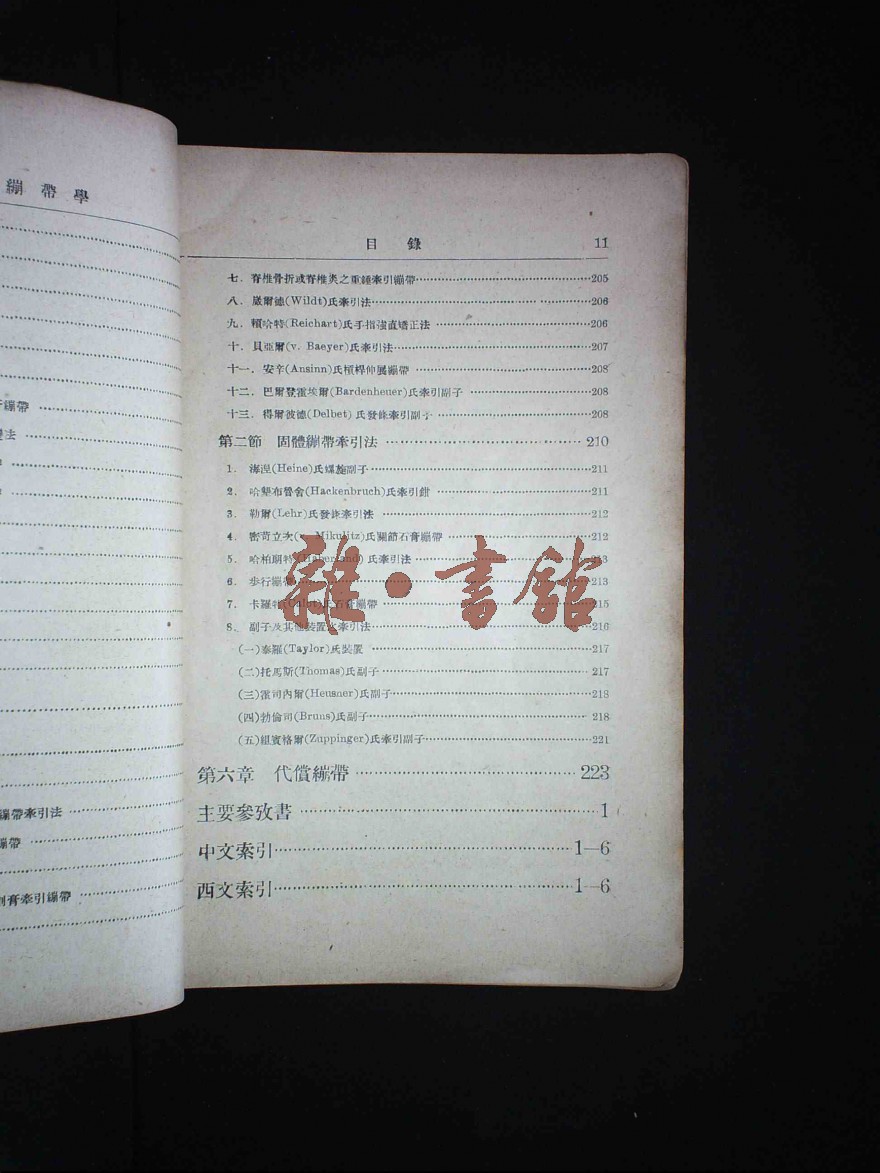 繃帶學
膏繃帶
法
繃帶牽引法
繃帶
膏牽引繃帶
目錄 11
七．脊椎骨折或脊椎炎之重錘牽引繃帶 205
八．嚴爾德(Wildt)氏牽引法 206
九．賴哈特(Reichart)氏手指強直矯正法 206
十．貝亞爾(v. Baeyer)氏牽引法 207
十一．安辛(Ansinn)氏槓桿伸展繃帶 208
十二．巴爾登霍埃爾(Bardenheuer)氏牽引副子 208
十三．得爾彼德(Delbet)氏發條牽引副子 208
第二節 固體繃帶牽引法 210
1．海涅(Heine)氏螺旋副子 211
2．哈墾布魯舍(Hackenbruch)氏牽引鉗 211
3．勒爾(Lehr)氏發條牽引法 212
4．密苛立次( Mikulitz)氏關節石膏繃帶 212
5．哈柏期特(Haberland)氏牽引法 213
6．步行繃帶 213
7．卡羅特(Calot)氏石膏繃帶 215
8．副子及其他裝置之牽引法 216
(一)泰羅(Taylor)氏裝置 217
(二)托馬斯(Thomas)氏副子 217
(三)霍司內爾(Heusner)氏副子 218
(四)勃倫司(Bruns)氏副子 218
(五)組賓格爾(Zuppinger)氏牽引副子 221
第六章 代償繃帶 223
主要參攷書 1
中文索引 1—6
西文索引 1—6
雜·書館